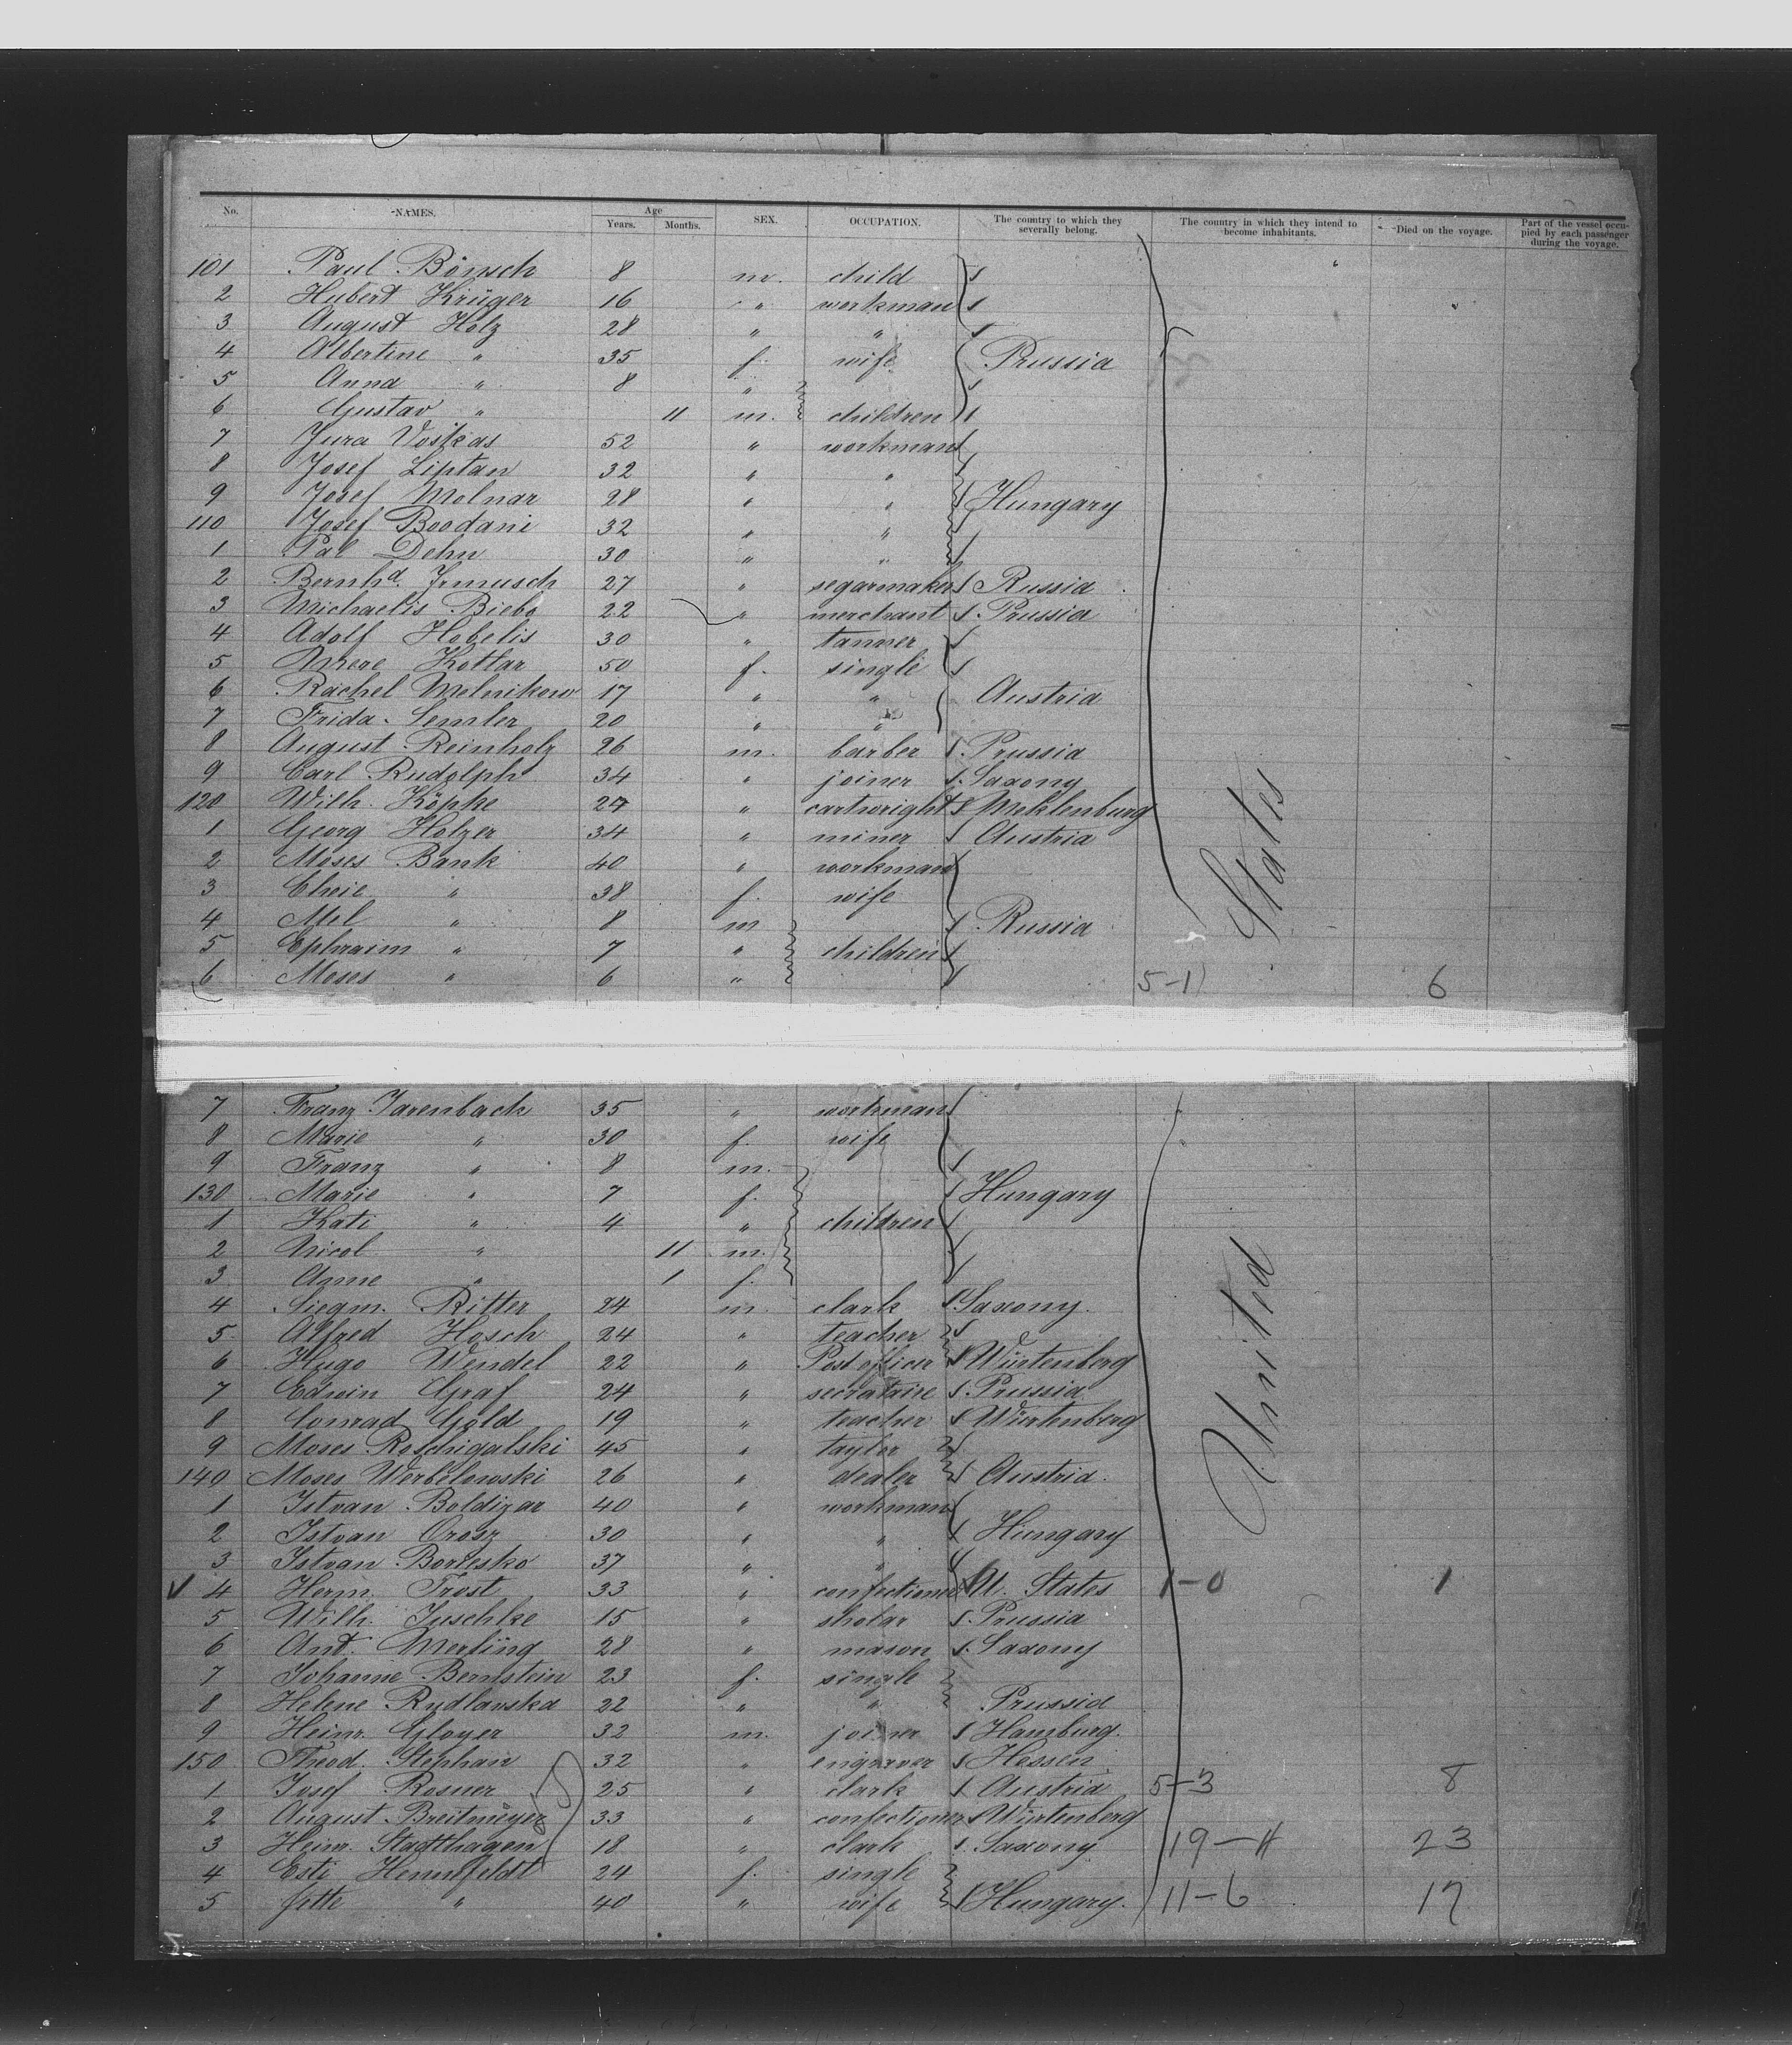 No. NAMES. Age Years. Months. SEX. OCCUPATION. The country to which they severally belong. The country in which they intend to become inhabitants. Died on the voyage. Part of the vessel occupied by each passenger during the voyage.
101 Paul Bönsch 8 m. child
2 Hubert Krüger 16 " workman
3 August Holz 28 " "
4 Albertine " 35 f. wife Prussia
5 Anna " 8 "
6 Gustav " 11 m. children
7 Jura Voskas 52 " workman
8 Josef Liptan 32 " "
9 Josef Molnar 28 " " Hungary
110 Josef Boodani 32 " "
1 Pal Dehn 30 " "
2 Bernhd. Irmusch 27 " segarmaker Russia
3 Michaelis Biebo 22 " merchant Prussia
4 Adolf Hobelis 30 " tanner
5 Kottar 50 f. single
6 Rachel Melnikow 17 " " Austria
7 Frida Semler 20 " "
8 August Reinholz 26 m. barber Prussia
9 Carl Rudolph 34 " joiner Saxony
120 Wilh. Köpke 27 " cartwright Meklenburg
1 Georg Holzer 34 " miner Austria
2 Moses Bank 40 " workman
3 " 38 f. wife
4 Mel " 8 m Russia
5 Ephraim " 7 " children
6 Moses " 6 " 5-1 6
States
7 Franz Jarenback 35 " workman
8 Marie " 30 f. wife
9 Franz " 8 m.
130 Marie " 7 f. Hungary
1 Kati " 4 " children
2 Nicol " 11 m.
3 Anne " 1 f.
4 Siegm. Ritter 24 m. clark Saxony.
5 Alfred Hosch 24 " teacher
6 Hugo Wendel 22 " Post officer Würtenberg
7 Edwin Graf 24 " secrataire Prussia
8 Conrad Gold 19 " teacher Würtenberg
9 Moses Roschigalski 45 " taylor
140 Moses Werbelowski 26 " dealer Austria.
1 Istvan Boldizar 40 " workman
2 Istvan Orosz 30 " " Hungary
3 Istvan Borlesko 37 " "
4 Herm. Trost 33 " confectioner U. States 1-0 1
5 Wilh. Juschke 15 " sholar Prussia
6 Ant. Merling 28 " mason Saxony
7 Johanne Bernstein 23 f. single
8 Helene Rudlavska 22 " " Prussia
9 Heinr. Gloyer 32 m. joiner Hamburg.
150 Theod. Stephan 32 " engraver Hessen
1 Josef Rosner 25 " clark Austria 5-3 8
2 August Breitmeyer 33 " confectioner Würtenberg
3 Heinr. Stadthagen 18 " clark Saxony 19-4 23
4 Esti Hennefeldt 24 f. single
5 Jette " 40 " wife Hungary. 11-6 17
United